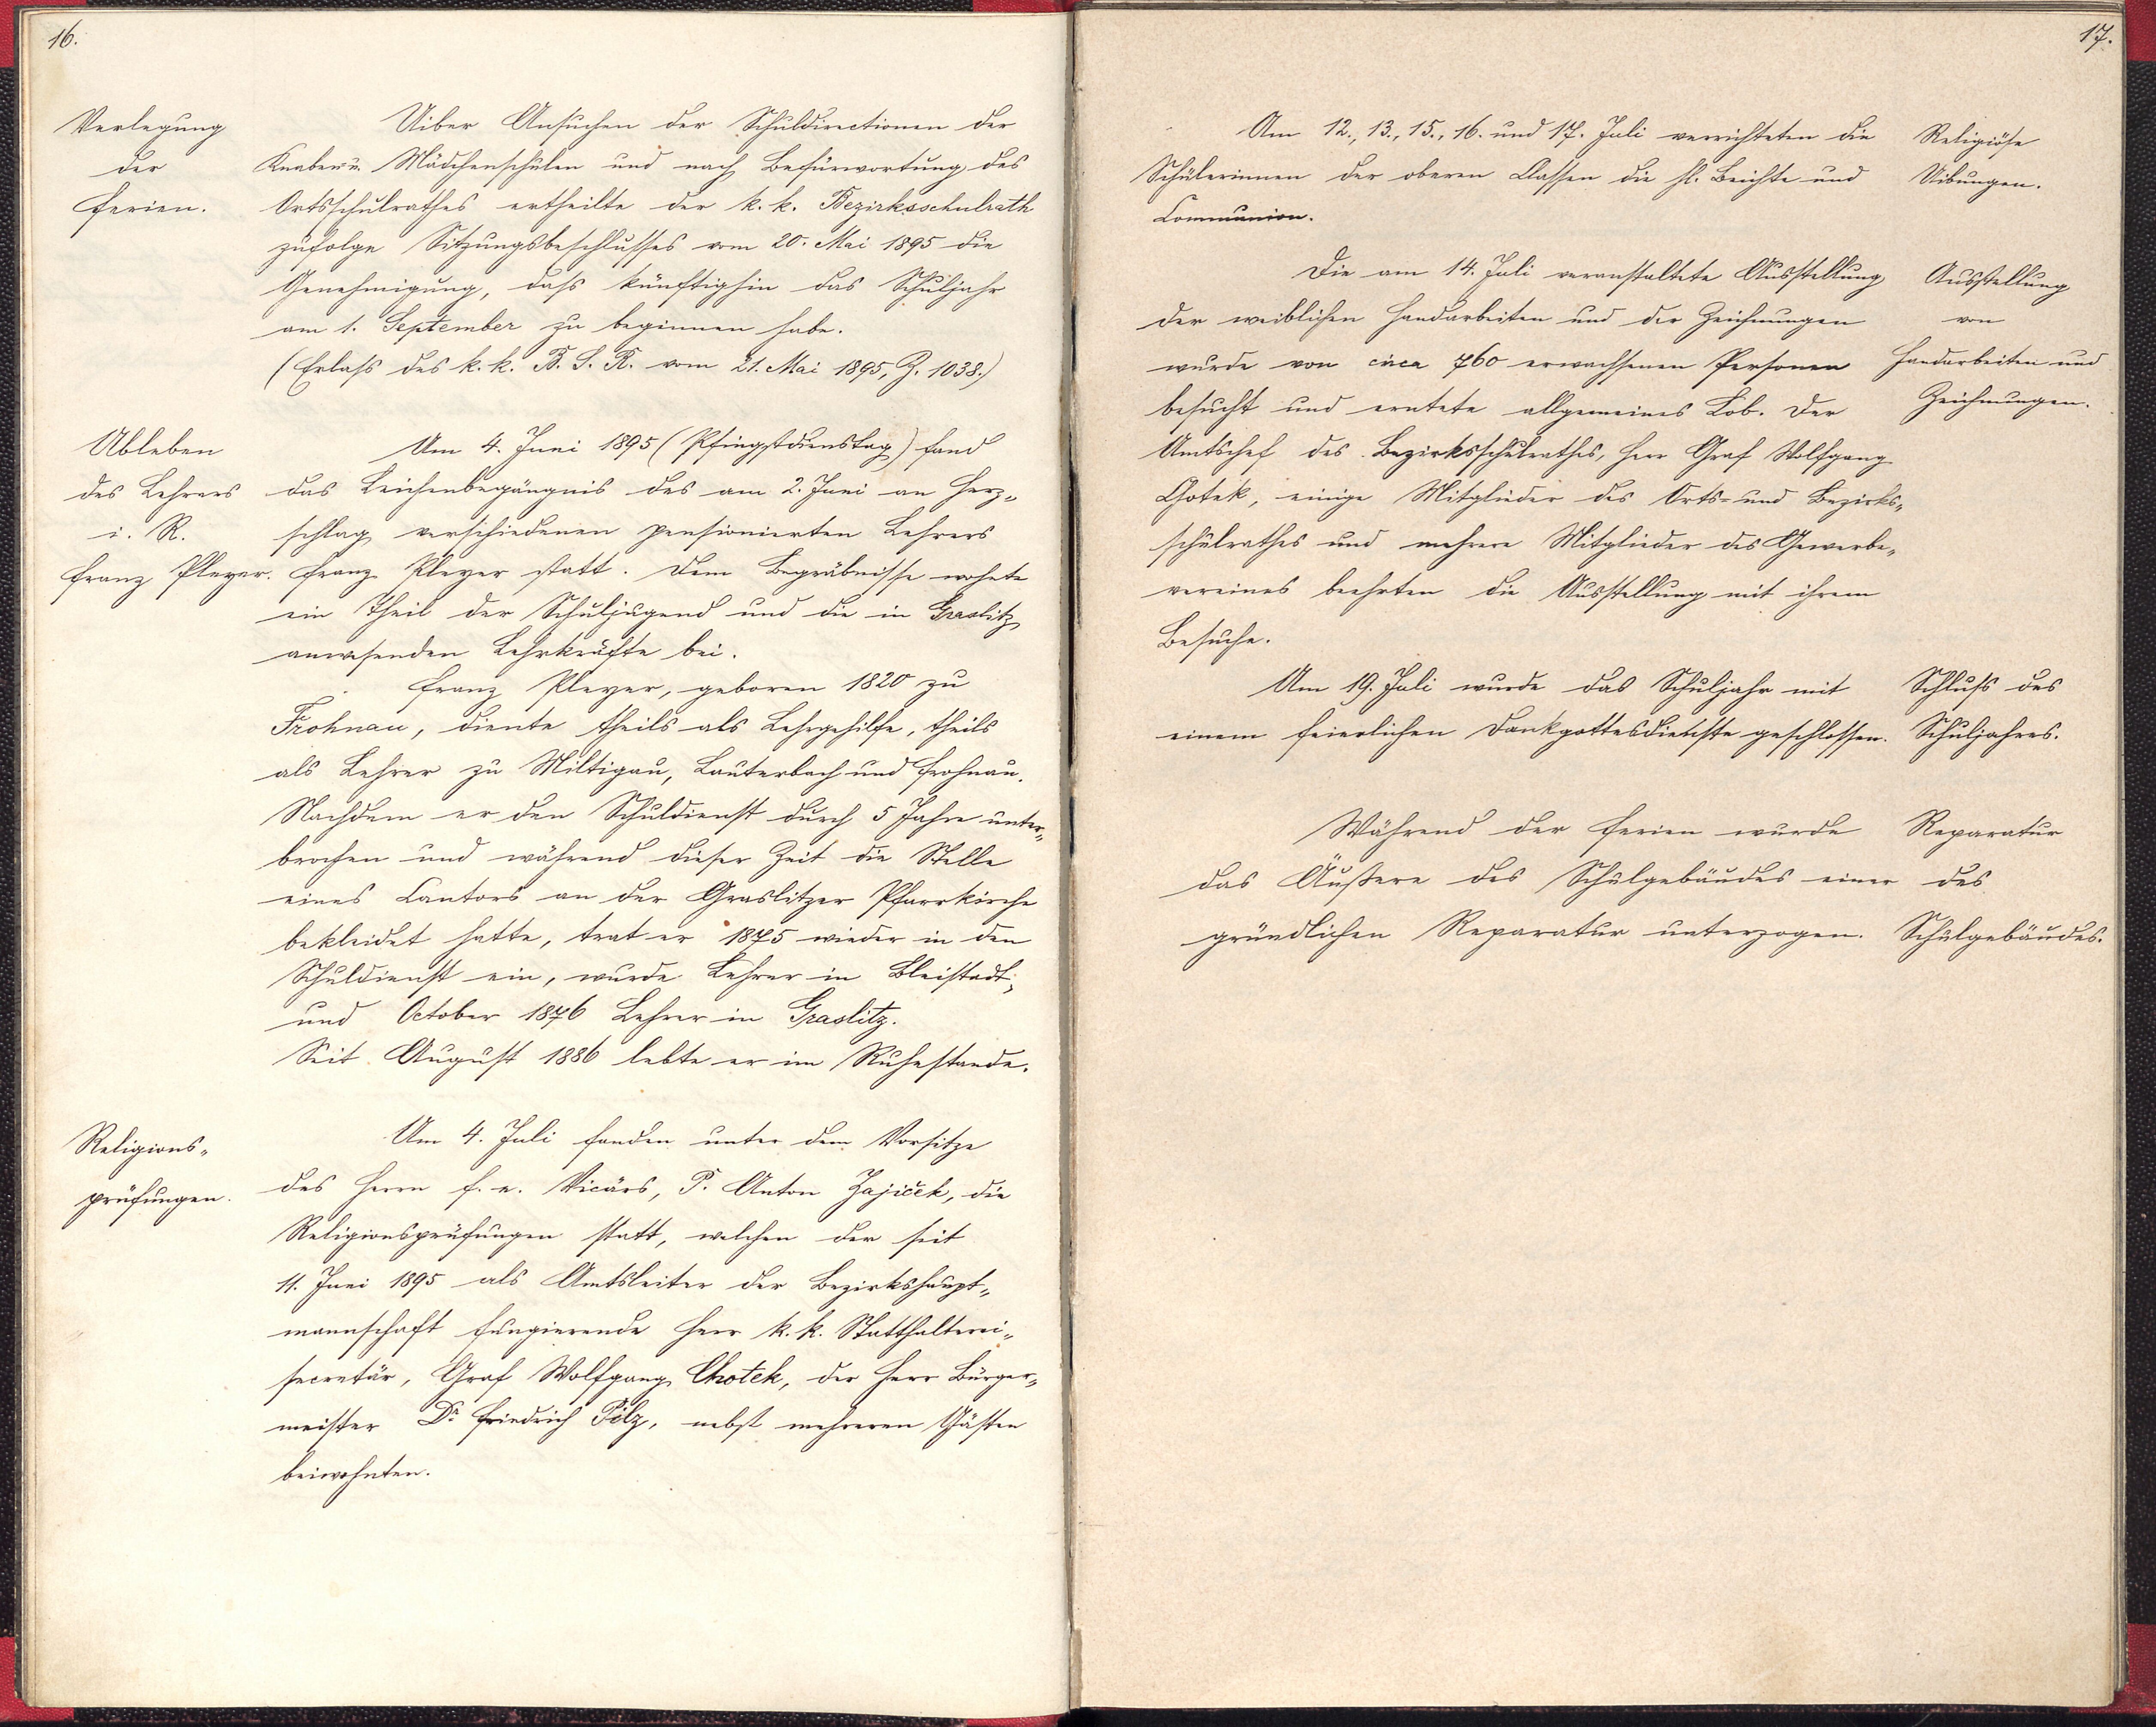 16.
Verlegung
der
Ferien.
Uiber Ansuchen der Schuldirectionen der
Knaben- u. Mädchenschulen und nach Befürwortung des
Ortsschulrathes ertheilte der k. k. Bezirksschulrath
zufolge Sitzungsbeschlusses vom 20. Mai 1895 die
Genehmigung, dass künftighin das Schuljahr
am 1. September zu beginnen habe.
(Erlass des k. k. B. S. R. vom 21. Mai 1895, Z. 1038.)
Ableben
des Lehrers
i. R.
Franz Pleyer.
Am 4. Juni 1895 (Pfingstdienstag) fand
das Leichenbegängnis des am 2. Juni an Herz-
schlag verschiedenen pensionierten Lehrers
Franz Pleyer statt. Dem Begräbnisse wohnte
ein Theil der Schuljugend und die in Graslitz
anwesenden Lehrkräfte bei.
Franz Pleyer, geboren 1820 zu
Frohnau, diente theils als Lehrgehilfe, theils
als Lehrer zu Miltigau, Lauterbach und Frohnau.
Nachdem er den Schuldienst durch 5 Jahre unter-
brochen und während dieser Zeit die Stelle
eines Cantors an der Graslitzer Pfarrkirche
bekleidet hatte, trat er 1875 wieder in den
Schuldienst ein, wurde Lehrer in Bleistadt
und October 1876 Lehrer in Graslitz.
Seit August 1886 lebte er im Ruhestande.
Religions-
prüfungen.
Am 4. Juli fanden unter dem Vorsitze
des Herrn f. e. Vicärs, P. Anton Zajiček, die
Religionsprüfungen statt, welchen der seit
11. Juni 1895 als Amtsleiter der Bezirkshaupt-
mannschaft fungierende Herr k. k. Statthalterei-
secretär, Graf Wolfgang Chotek, der Herr Bürger-
meister Dr. Friedrich Pölz, nebst mehreren Gästen
beiwohnten.
17.
Am 12., 13., 15., 16. und 17. Juli verrichteten die
Schülerinnen der oberen Classen die hl. Beichte und
Communion.
Religiöse
Uibungen.
Die am 14. Juli veranstaltete Ausstellung
der weiblichen Handarbeiten und der Zeichnungen
wurde von circa 760 erwachsenen Personen
besucht und erntete allgemeines Lob. Der
Amtschef des Bezirksschulrathes, Herr Graf Wolfgang
Chotek, einige Mitglieder des Orts- und Bezirks-
schulrathes und mehrere Mitglieder des Gewerbe-
vereines beehrten die Ausstellung mit ihrem
Besuche.
Ausstellung
von
Handarbeiten und
Zeichnungen.
Am 19. Juli wurde das Schuljahr mit
einem feierlichen Dankgottesdienste geschlossen.
Schluss des
Schuljahres.
Während der Ferien wurde
das Äußere des Schulgebäudes einer
gründlichen Reparatur unterzogen.
Reparatur
des
Schulgebäudes.